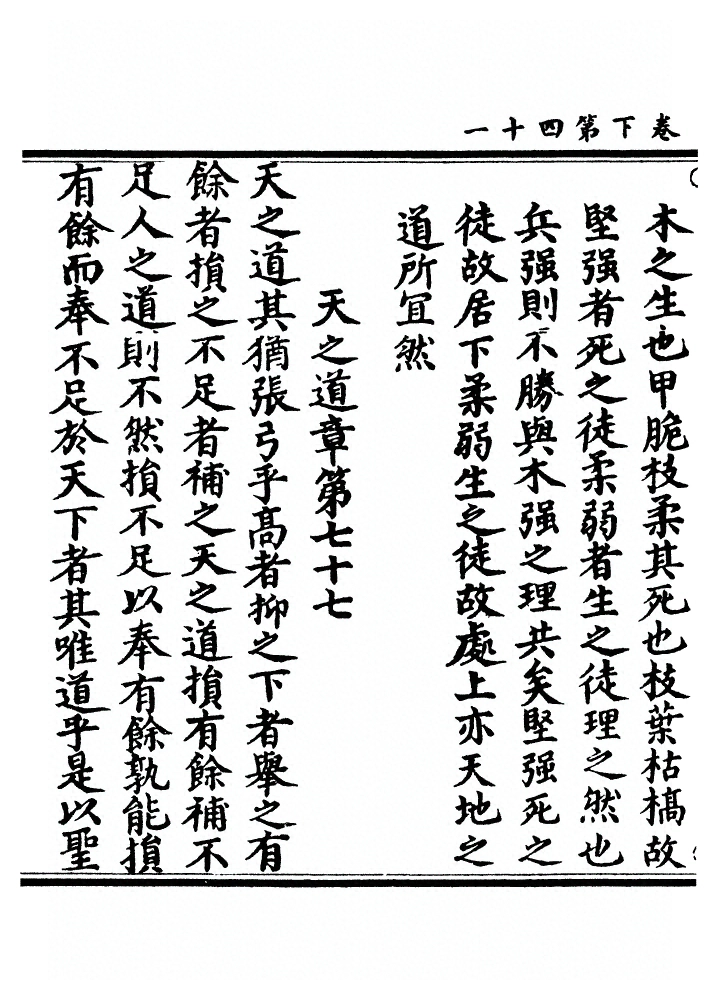 卷下第四十一
木之生也甲脆枝柔其死也枝葉枯槁故
堅强者死之徒柔弱者生之徒理之然也
兵强則不勝與木强之理共矣堅强死之
徒故居下柔弱生之徒故處上亦天地之
道所冝然
天之道章第七十七
天之道其猶張弓乎高者抑之下者舉之有
餘者損之不足者補之天之道損有餘補不
足人之道則不然損不足以奉有餘孰能損
有餘而奉不足於天下者其唯道乎是以聖